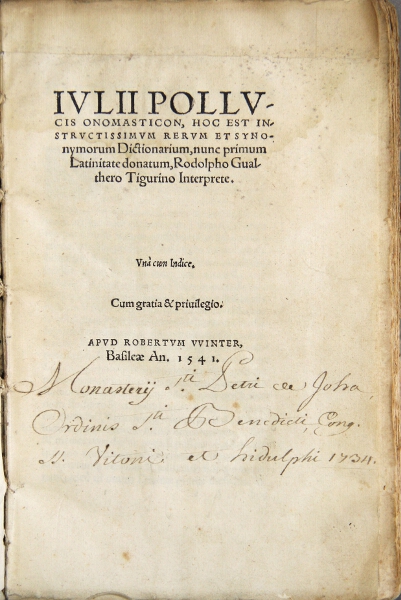 IVLII POLLV-
CIS ONOMASTICON, HOC EST IN-
STRVCTISSIMVM RERVM ET SYNO-
nymorum Dictionarium, nunc primum
Latinitate donatum, Rodolpho Gual-
thero Tigurino Interprete.
Vnà cum Indice.
Cum gratia & priuilegio.
APVD ROBERTVM VVINTER,
Basileæ An. 1541.
Monasterij Sti Petri de
Ordinis Sti Benedicti, Cong.
Vitoni et hidulphi 1734.